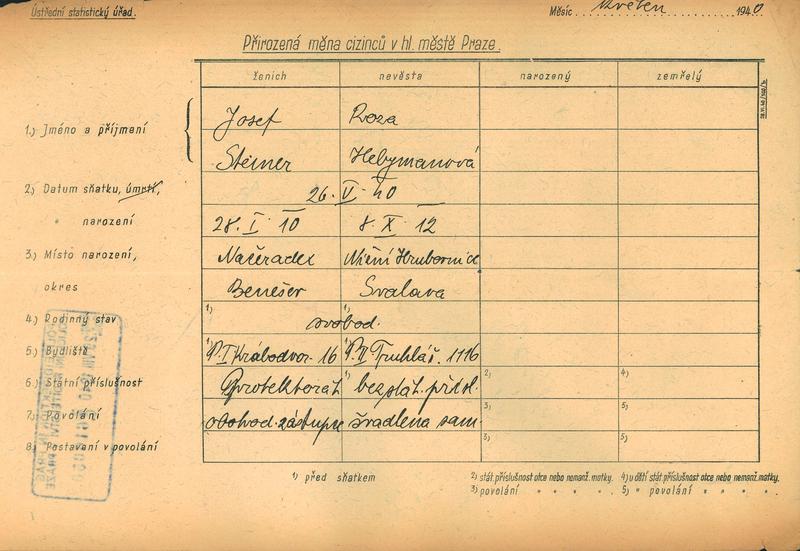 Ústřední statistický úřad.
Měsíc Květen 1940
Přirozená měna cizinců v hl. městě Praze.
ženich nevěsta narozený zemřelý
1.) Jméno a příjmení
Josef Roza
Steiner
2.) Datum sňatku, úmrtí,
26. V. 40
" narození
28. I. 10 8. X. 12
3.) Místo narození,
Načeradec Nižní
okres
Benešov Svalava
4.) Rodinný stav
1) 1)
svobod.
5.) Bydliště
1) P. I Králodvor. 16 1) P. II Truhlář. 1116
6.) Státní příslušnost
Protektorát 1) bez stát. přísl. 2) 4)
7.) Povolání
obchod. zástupce švadlena sam. 3) 5)
8.) Postavení v povolání
3) 5)
1) před sňatkem
2) stát. příslušnost otce nebo nemanž. matky.
3) povolání " " " "
4) u dětí stát. příslušnost otce nebo nemanž. matky.
5) " povolání " " " "